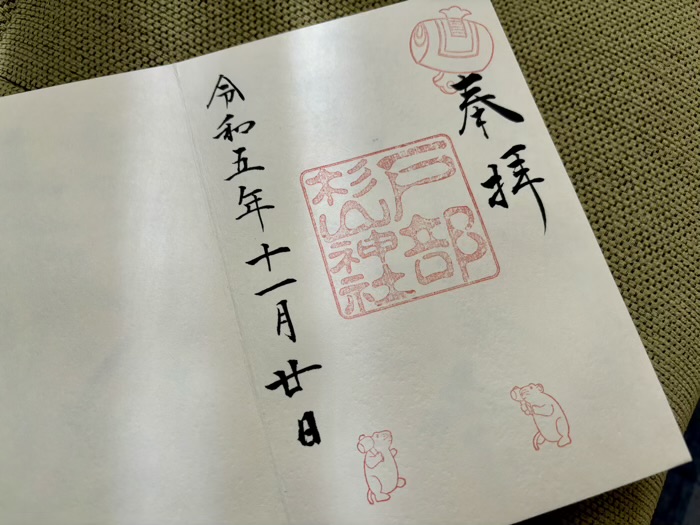 奉拝
戸部
杉山神社
令和五年十一月廿日